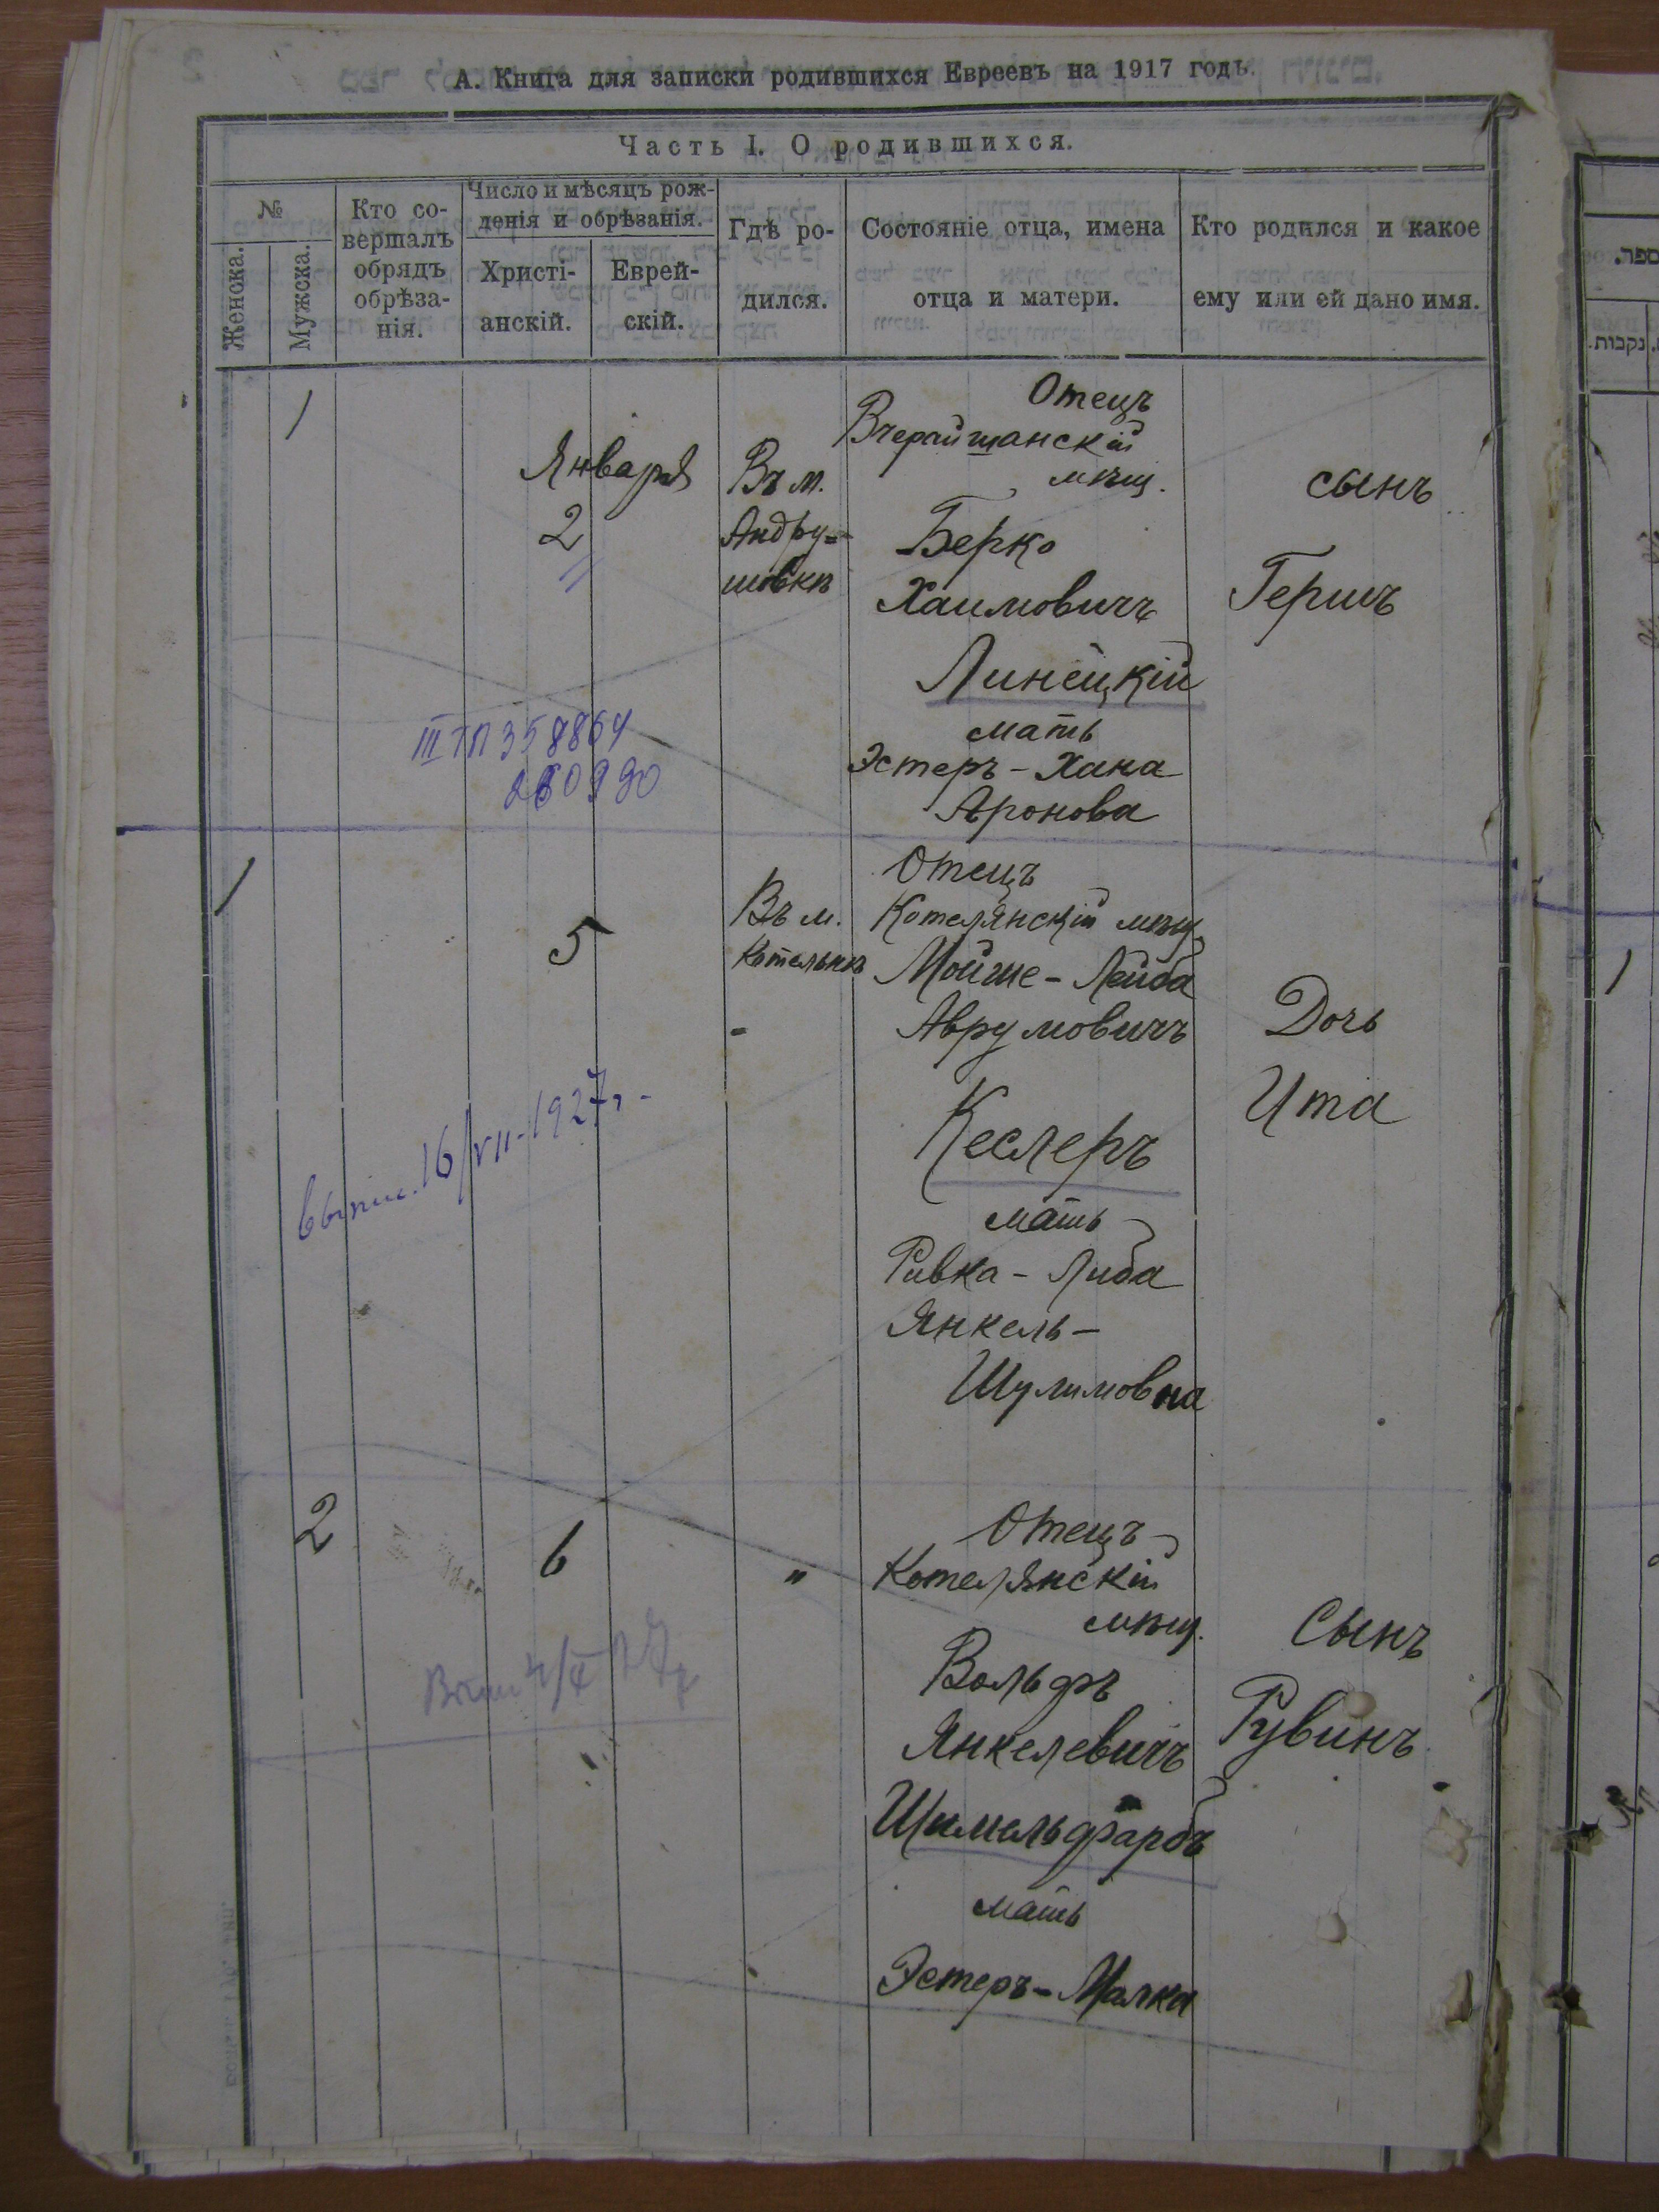 А. Книга для записки родившихся Евреевъ на 1917 годъ.
Часть I. О родившихся.
№
Женска.
Мужска.
Кто со-
вершалъ
обрядъ
обрѣза-
нія.
Число и мѣсяцъ рож-
денія и обрѣзанія.
Христі-
анскій.
Еврей-
скій.
Гдѣ ро-
дился.
Состояніе отца, имена
отца и матери.
Кто родился и какое
ему или ей дано имя.
1
Января
2
Въ м.
Андру=
шовкѣ
Отецъ
Вчерайшанскій
мѣщ.
Берко
Хаимовичъ
Линецкій
мать
Эстеръ-Хана
Аронова
сынъ
Гершъ
III ТП 358864
260990
1
5
Въ м.
Котельнѣ
Отецъ
Котелянскій мѣщ.
Мойше-Лейба
Аврумовичъ
Кеслеръ
мать
Ривка-Либа
Янкель-
Шулимовна
Дочь
Ита
выпис. 16/VII-1927г.-
2
6
"
Отецъ
Котелянскій
мѣщ.
Вольфъ
Янкелевичъ
Шимельфарбъ
мать
Эстеръ-Малка
Сынъ
Рувинъ
ספר.
נקבות.
1